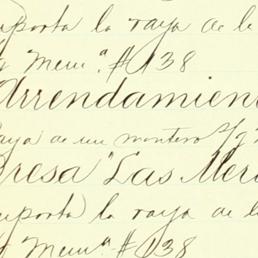 mporta la raya de la
y Mem.ª # 138
Arrendamien
raya de un montero
presa "Las Mer
mporta la raya de la
y Mem.ª # 138